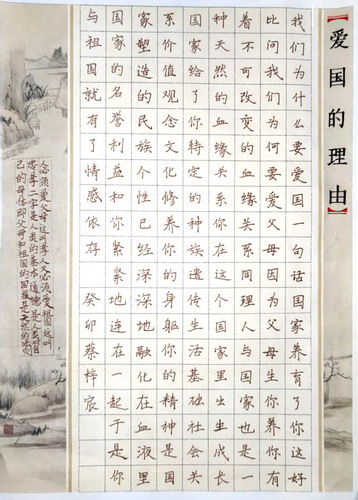 【爱国的理由】
我们为什么要爱国一句话国家养育了你这就好
比问我们为何要爱父母因为父母生你养你有
着不可改变的血缘关系同理人与国家也是一
种天然的血缘关系在这个国家里出生成长
国家给了你特定的种族遗传生活基础社会关
系价值观念文化修养你的身躯你的精神是国
家塑造的民族文化个性已经深深地融化在血液里
国家的名誉利益和你紧紧地连在一起于是你
与祖国就有了情感依存 癸卯蔡梓宸
人必须爱父母这叫孝人又必须爱祖国这叫
忠孝二字是人类的基本道德是人类对自
己的母体即父母和祖国的回报是天然的法则